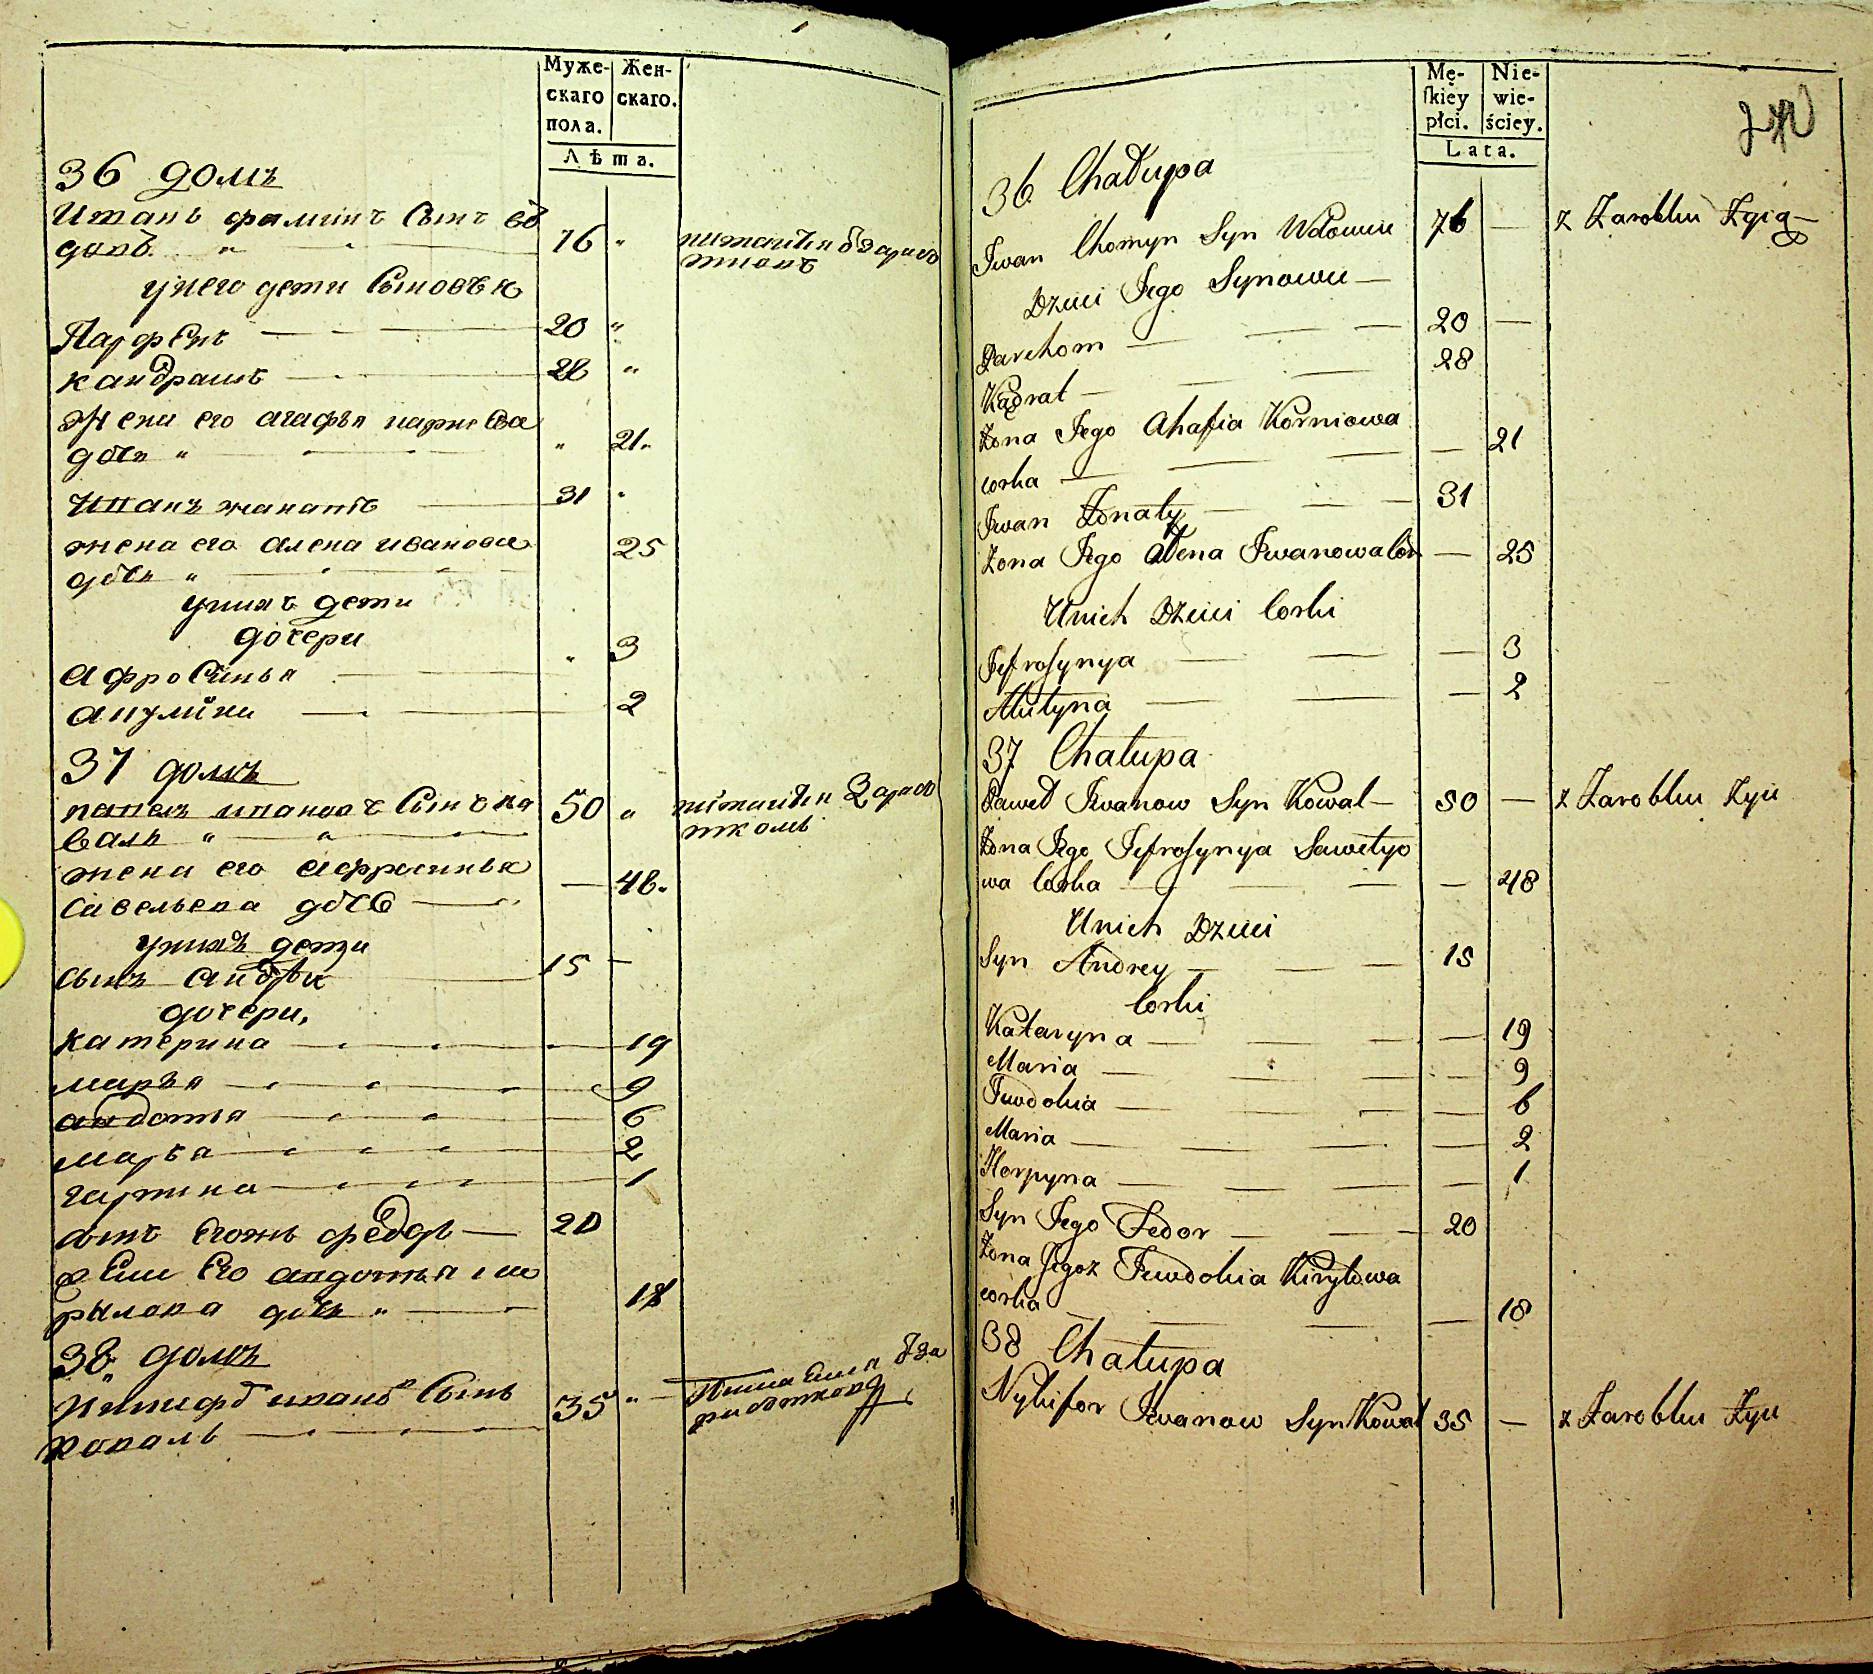 Муже-
скаго
пола.
Жен-
скаго.
Лѣта.
36 домъ
Иванъ фаминъ Сынъ вд
довъ. " 76 "
унего дети Сыновья
Парфенъ 20 "
кандратъ 28 "
Жена его агафья карнеева
дочь " " 21.
Иванъ жанатъ 31
жена его алена иванова 25
дочь "
унихъ дети
дочери
афросинья 3
акулина 2
37 домъ
павелъ ивановъ Сынъ ка
валь " " 50 "
жена его афросинья
савельева дочь — 48.
унихъ дети
сынъ андрей 15 —
дочери,
катерина 19
марья 9
авдотья 6
марья 2
гарпина 1
сынъ Егожъ федоръ — 20
жена Его авдотья ки
рылова дочь " 18
38 домъ
Никифоръ иванов Сынъ
коваль 35 "
Mę-
ſkiey
płci.
Nie-
wie-
ściey.
Lata.
36 Chałupa
Jwan Chomyn Syn Wdowiec 76 — z Zarobku Zyią
Dzieci Jego Synowie —
Parchom 20 —
Kądrat — 28
Zona Jego Ahafia Korniowa
corka — 21
Jwan Zonaty 31
Zona Jego Ałena Jwanowa Cor — 25
Unich Dzieci Corki
Jefrosynya — 3
Akulyna — 2
37 Chałupa
Paweł Jwanow Syn Kowal — 50 — z Zarobku Zyie
Zona Jego Jefrosynya Sawelyo
wa Corka — 48
Unich Dzieci
Syn Andrey 15
Corki
Kataryna — 19
Maria — 9
Jewdokia — 6
Maria — 2
Horpyna — 1
Syn Jego Fedor — 20
Zona Jegoz Jewdokia Kiryłowa
corka — 18
38 Chałupa
Nykifor Jwanow Syn Kowal 35 — z Zarobku Zyie